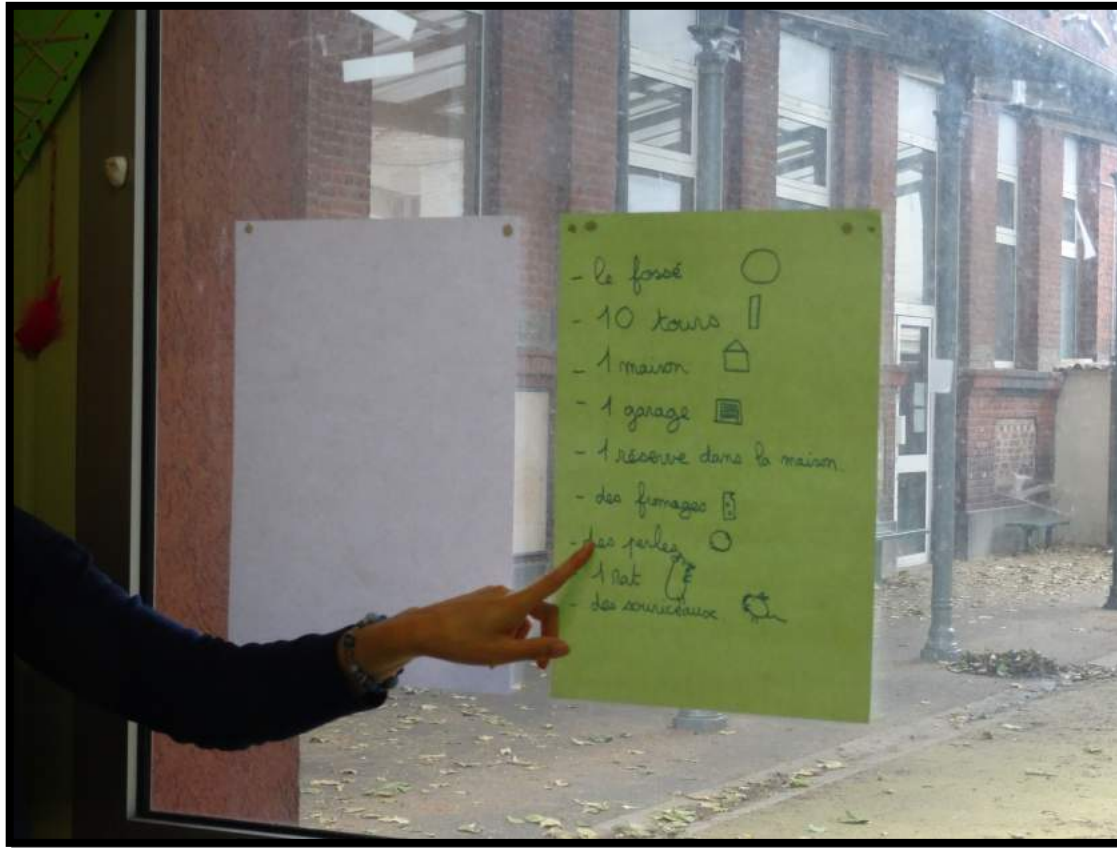 - le fossé
- 10 tours
- 1 maison
- 1 garage
- 1 réserve dans la maison.
- des fromages
- des perles
- 1 rat
- des souriceaux